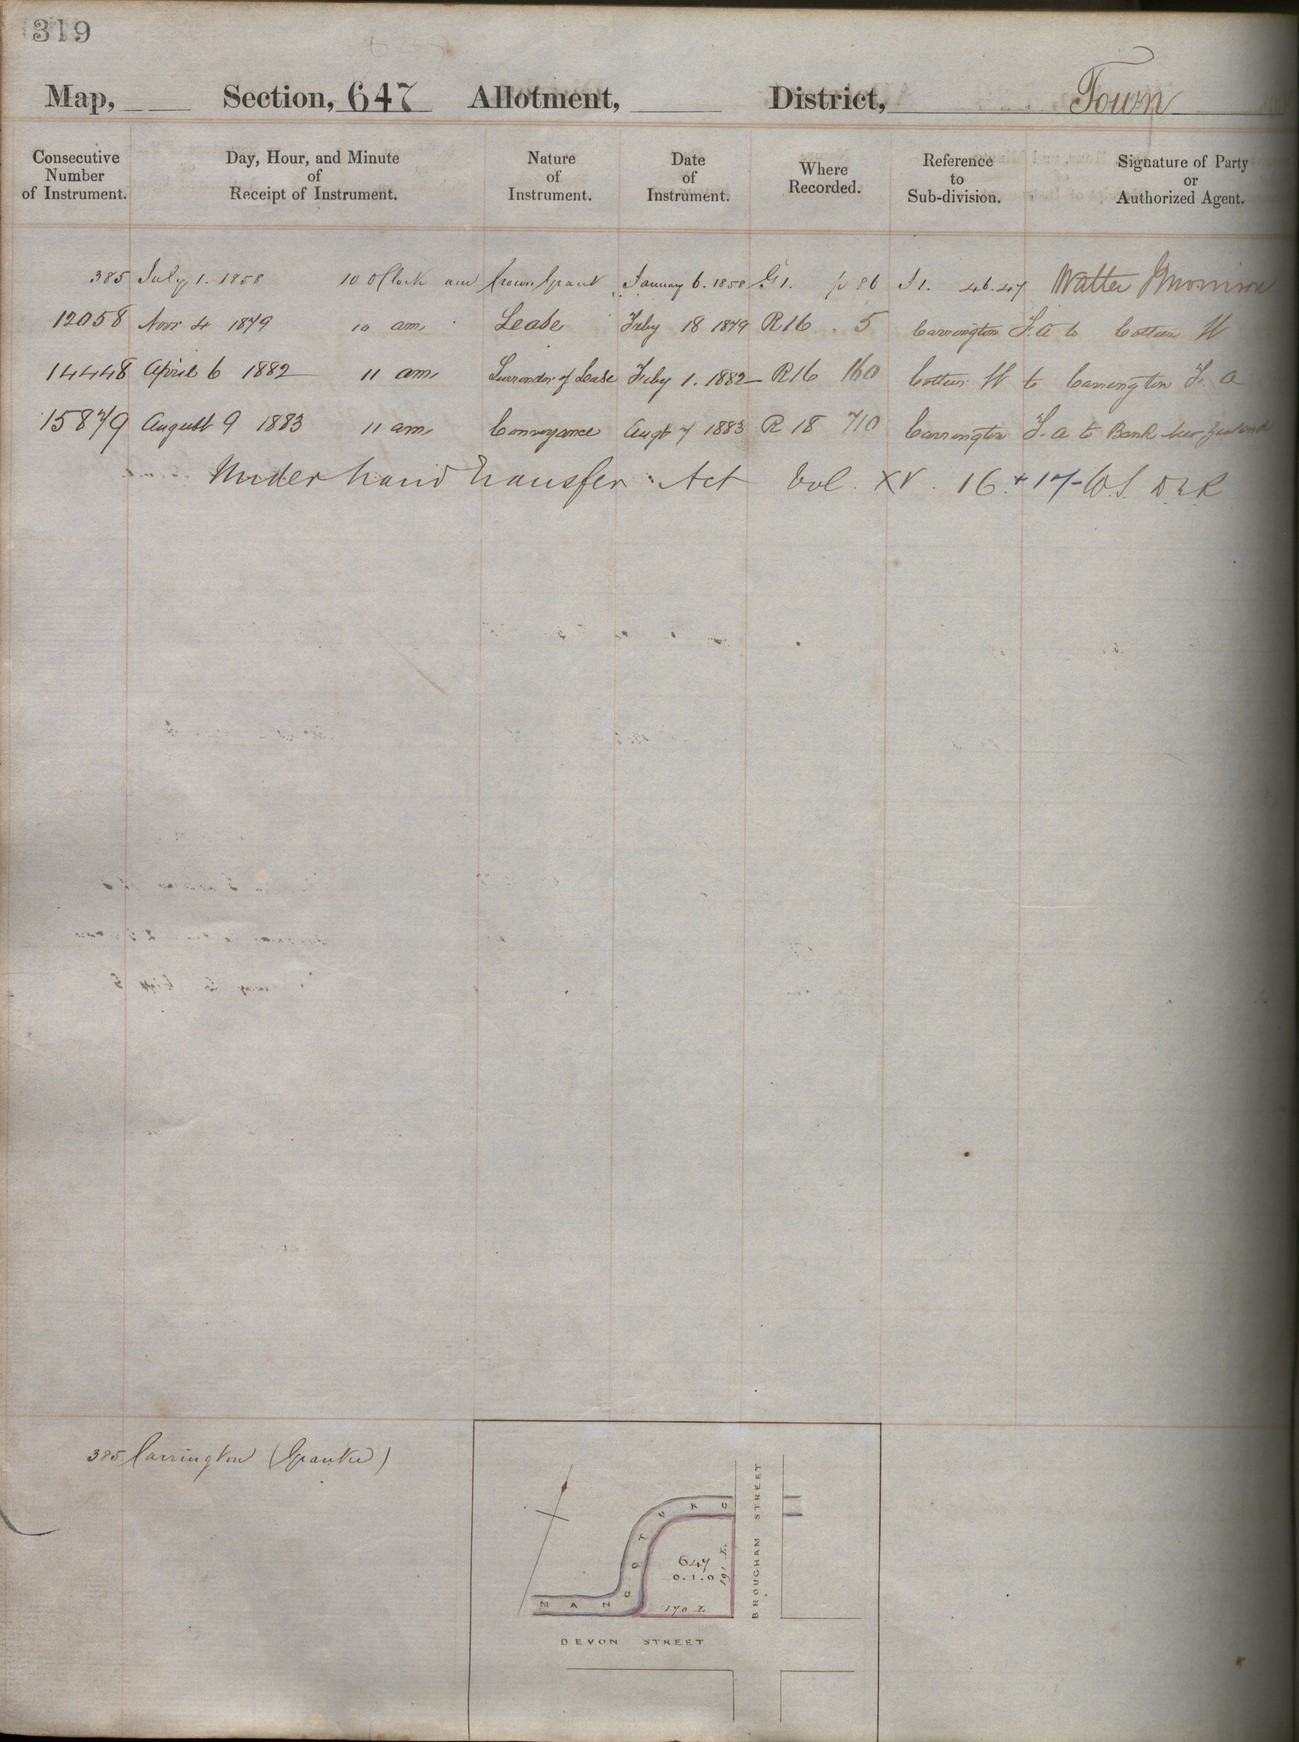 319
Map, Section, 647 Allotment, District, Town
Consecutive Number of Instrument. Day, Hour, and Minute of Receipt of Instrument. Nature of Instrument. Date of Instrument. Where Recorded. Reference to Sub-division. Signature of Party or Authorized Agent.
385 July 1. 1858 10 O'Clock am Crown Grant January 6. 1858 G1. p 86 46.47 Walter Morrison
12058 Novr 4 1879 10 am Lease Feby 18 1879 R16 5 Carrington F. A to Cottier W
14448 April 6 1882 11 am Surrender of Lease Feby 1. 1882 R16 160 Cottier W to Carrington F. A
15879 August 9 1883 11 am Conveyance Augt 7 1883 R 18 710 Carrington F. A to Bank New Zealand
Under Land Transfer Act Vol. XV. 16 + 17 - W.S. D L R
385 Carrington (Grantee)
BROUGHAM STREET
MANGOTUKU
647
0.1.0
191 L.
170 L.
DEVON STREET